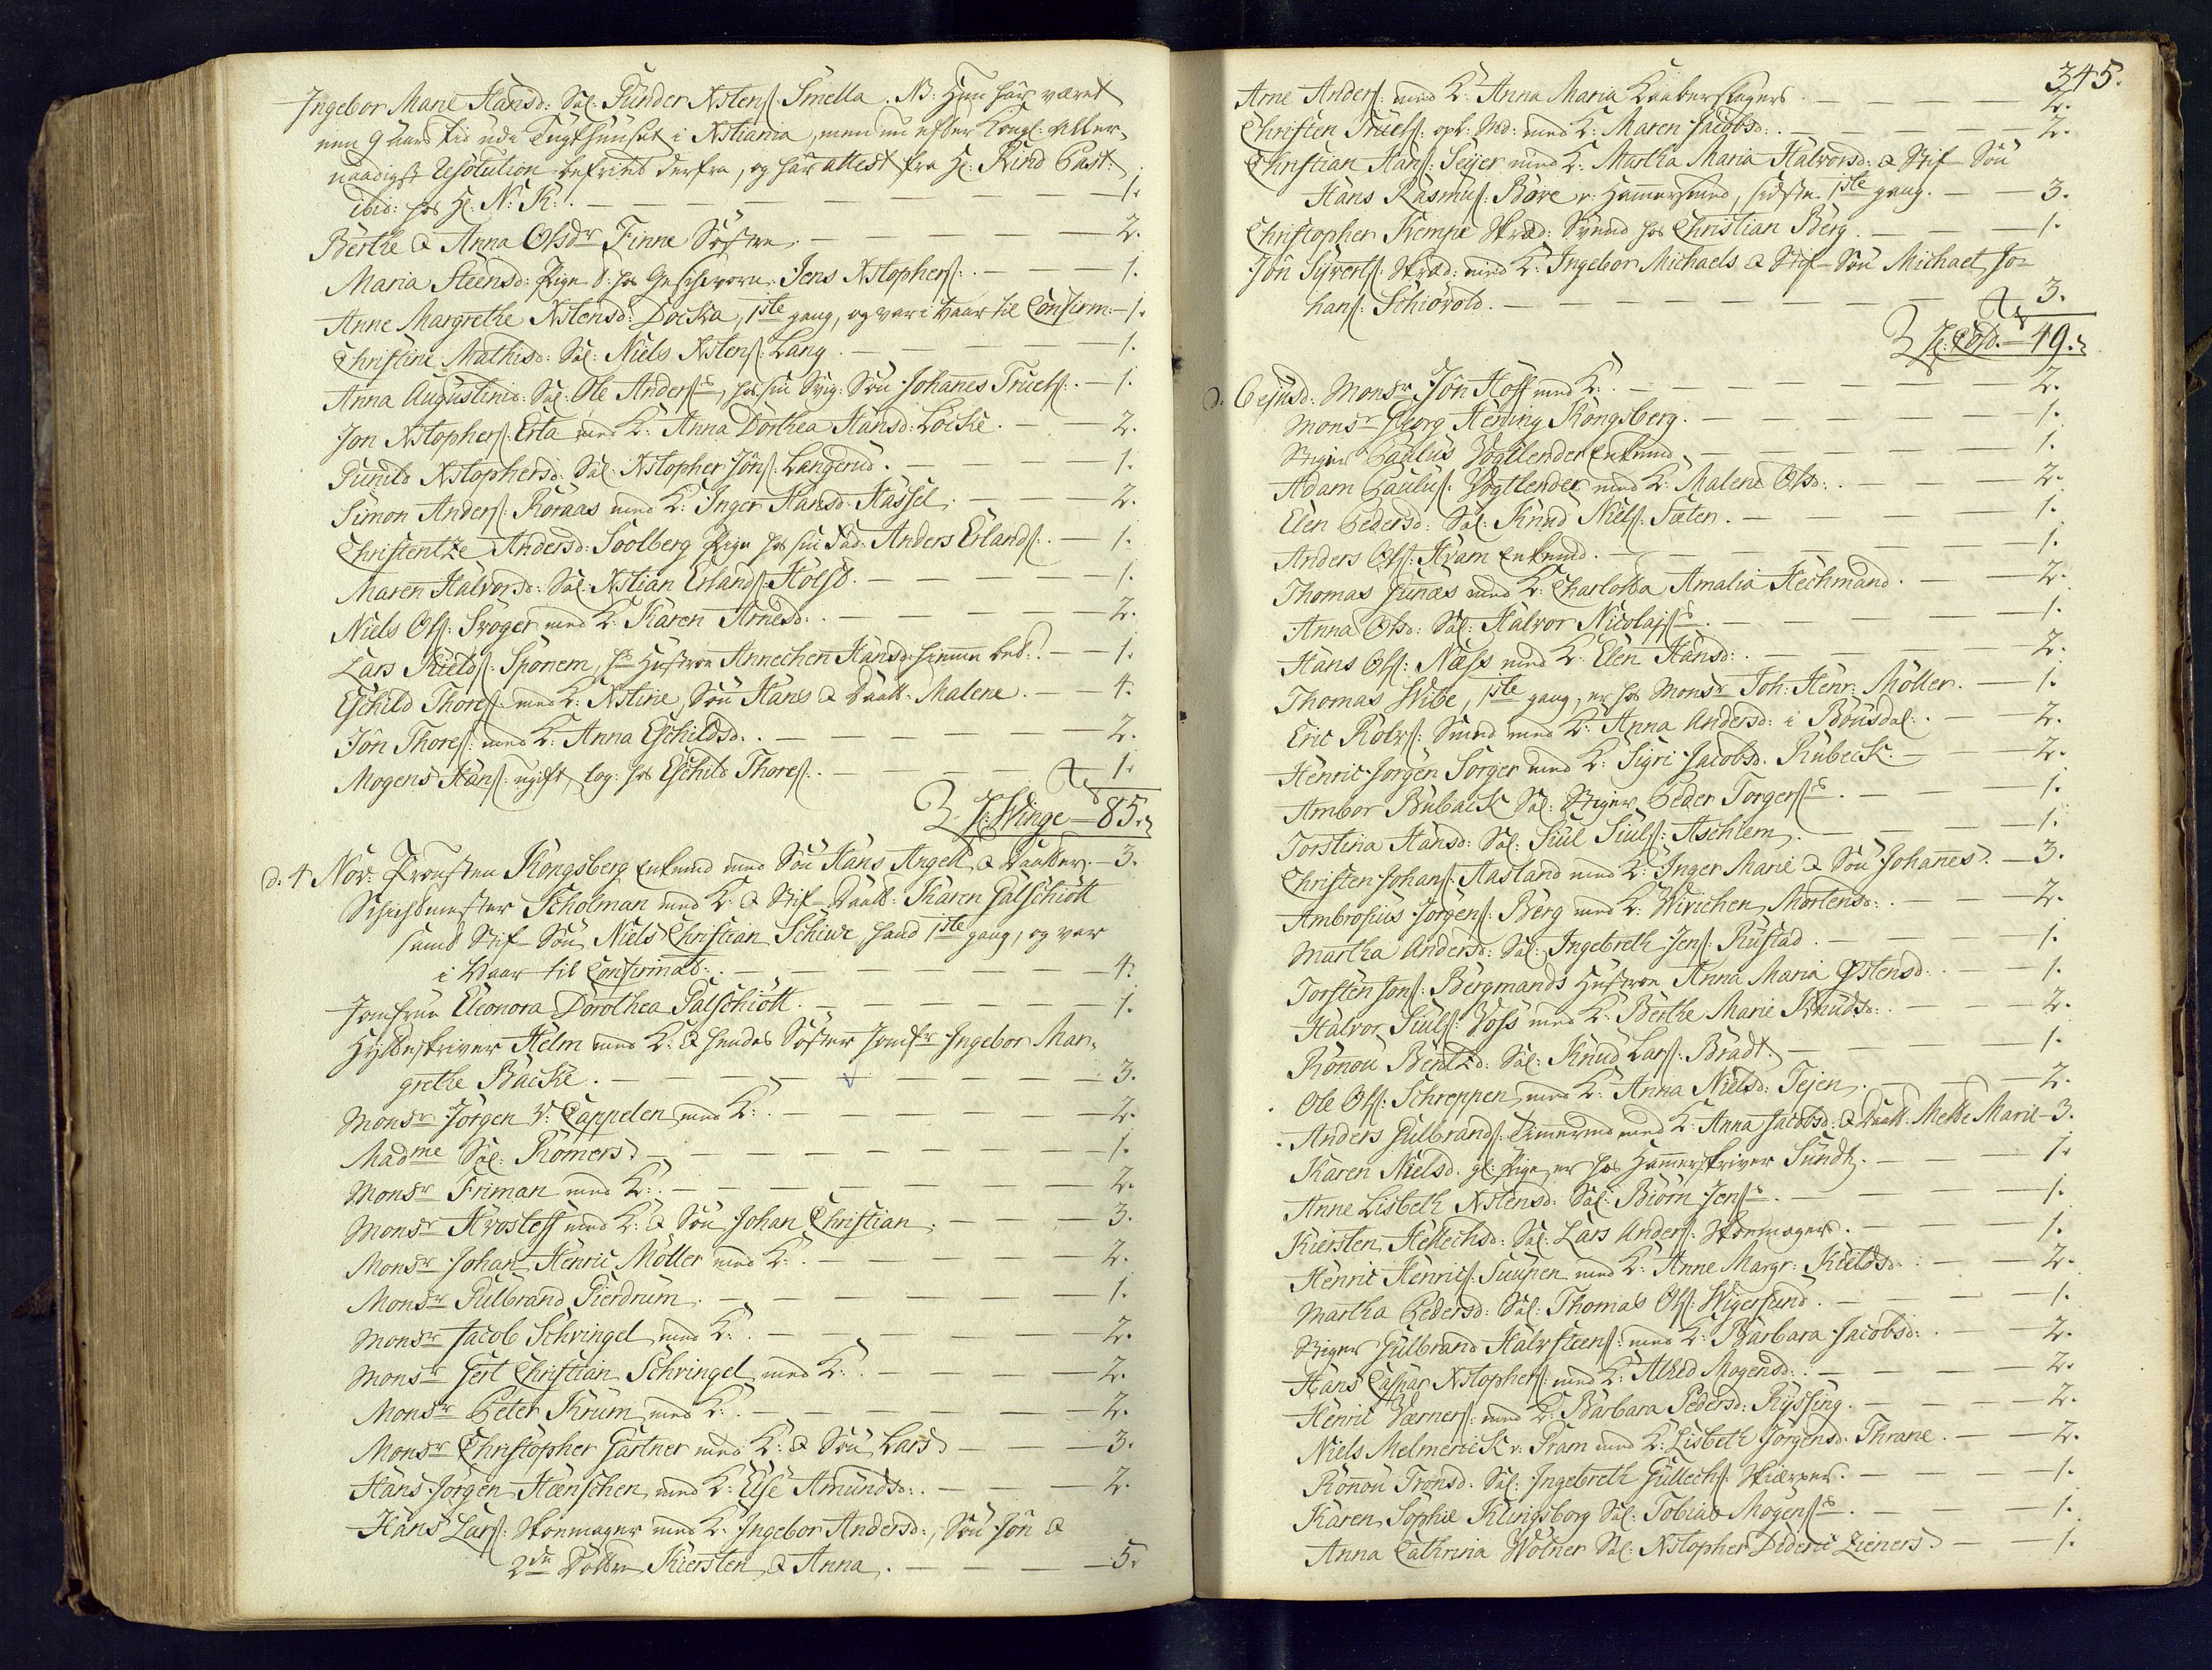 Ingebor Marie Hansd: Sal: Gunder Xstens: Smella. NB: Hun har været
nun 9 Aars tid udi Tugthuuset i Xstiania, men nu efter Kongl: Aller-
naadigst Resolution befriet derfra, og har attest fra Hr: Rind Past:
ibid: hos Hr: N: K: . — 1.
Berthe & Anna Olsdr Finne Søstre. — 2.
Maria Steensd: Pige d: hos Geschworn. Jens Xstophers: . — 1.
Anne Margrethe Xstensd: Docka, 1ste gang, og var i Vaar til Confirm. — 1.
Christine Mathisd: Sal: Niels Xstens: Lang. — 1.
Anna Augustinid: Sal: Ole Anders:s, hos sin Svig: Søn Johannes Truels: . — 1.
Jon Xstophers: Erta med K: Anna Dorthea Hansd: Locke. — 2.
Gunild Xstophersd: Sal: Xstopher Jons: Langerud. — 1.
Simon Anders: Roraas med K: Inger Hansd: Hassel. — 2.
Christentze Andersd: Soolberg Pige hos sin Fad: Anders Erlands: . — 1.
Maren Halvorsd: Sal: Xstian Erlands: Holst. — 1.
Niels Ols: Svoger med K: Karen Arnesd: . — 2.
Lars Kields: Sponem, hs Hustroe Annechen Hansd: hiemme bet: . — 1.
Eschild Thores: med K: Xstine, Søn Hans & Daatt: Malene. — 4.
Jon Thores: med K: Anna Eschildsd: . — 2.
Mogens Hans: ugift, log: hos Eschild Thores: . — 1.
Hr: Winge — 85.
d. 4 Nov: Provsten Kongsberg Enkemd med Søn Hans Angell & Daatter. — 3.
Schichtmester Scholman med K: & Stif-Daatt: Karen Galschiött
samt Stif-Søn Niels Christian Schive hand 1ste gang, og var
i Vaar til Confirmat: . — 4.
Jomfrue Eleonora Dorothea Galschiött. — 1.
Hytteskriver Helm med K: & hendes Søster Jomfr Ingebor Mar-
grethe Backe. — 3.
Monsr Jörgen v: Cappelen med K: . — 2.
Madme Sal: Römers. — 1.
Monsr Friman med K: . — 2.
Monsr Hvosleff med K: & Søn Johan Christian. — 3.
Monsr Johan Henric Möller med K: . — 2.
Monsr Gulbrand Gierdrum. — 1.
Monsr Jacob Schvingel med K: . — 2.
Monsr Gert Christian Schvingel med K: . — 2.
Monsr Peter Krum med K: . — 2.
Monsr Christopher Gartner med K: & Søn Lars. — 3.
Hans Jörgen Hænschen med K: Else Amundsd: . — 2.
Hans Lars: Skoemager med K: Ingebor Andersd:, Søn Jon &
2de Døttre Kiersten & Anna. — 5.
345.
Arne Anders: med K: Anna Maria Kaaberslagers. — 2.
Christen Truels: opl: Md: med K: Maren Jacobsd: . — 2.
Christian Hans: Seyer med K: Martha Maria Halvorsd: & Stif-Søn
Hans Rasmus: Bore v: Hammersmed, sidste 1ste gang. — 3.
Christopher Kempe Skræd: Svend hos Christian Berg. — 1.
Jon Syverts: Skræd: med K: Ingebor Michaels & Stif-Søn Michael Jo-
hans: Schiövold. — 3.
— 49.
d. 6 ejusd. Monsr Jon Hoff med K: . — 2.
Monsr Georg Hening Kongsberg. — 1.
Stiger Paulus Vogtlender Enkemd. — 1.
Adam Paulus: Vogtlender med K: Malene Olsd: . — 2.
Elen Pedersd: Sal: Knud Niels: Sæter. — 1.
Anders Ols: Hvam Enkemd. — 1.
Thomas Junæs med K: Charlotta Amalia Hechmand. — 2.
Anna Olsd: Sal: Halvor Nicolajs:s. — 1.
Hans Ols: Næss med K: Elen Hansd: . — 2.
Thomas Wibe, 1ste gang, er hos Monsr Joh: Henr: Möller. — 1.
Eric Rolvs: Smed med K: Anna Andersd: i Bousdal. — 2.
Henric Jörgen Sorger med K: Sigri Jacobsd. Rubeck. — 2.
Ambor Bubach Sal: Stiger Peder Torgers:s. — 1.
Torstina Hansd: Sal: Siul Siuls: Aschlem. — 1.
Christen Johans: Aasland med K: Inger Marie & Søn Johannes. — 3.
Ambrosius Jörgens: Berg med K: Wirichen Mortensd: . — 2.
Martha Andersd: Sal: Ingebreth Jens: Rustad. — 1.
Torsten Jons: Bergmands Hustroe Anna Maria Östensd: . — 1.
Halvor Siuls: Voss med K: Berthe Marie Knudsd: . — 2.
Rönnou Bentzd: Sal: Knud Lars: Bradt. — 1.
Ole Ols: Schreppen med K: Anna Nielsd: Tejen. — 2.
Anders Gulbrands: Tømmermd med K: Anna Jacobsd: & Daatt: Mette Marie — 3.
Karen Nielsd. gl: Pige, er hos Hammerskriver Sundt. — 1.
Anne Lisbeth Xstensd: Sal: Biörn Jens:s. — 1.
Kiersten Hellechsd: Sal: Lars Anders: Skoemager. — 1.
Henric Henrics: Suupen med K: Anne Margr: Kieldsd: . — 2.
Martha Pedersd: Sal: Thomas Ols: Wigersund. — 1.
Stiger Gulbrand Halvsteens: med K: Barbara Jacobsd: . — 2.
Hans Caspar Xstophers: med K: Alhed Mogensd: . — 2.
Henric Værners: med K: Barbara Pedersd: Ryssing. — 2.
Niels Melmerick v: Pram med K: Lisbeth Jörgensd: Thrane. — 2.
Rönnou Tronsd: Sal: Ingebreth Gullechs: Skiærpes. — 1.
Karen Sophie Klingsborg Sal: Tobias Mogens:s. — 1.
Anna Cathrina Wölner Sal: Xstopher Dideric Zieners. — 1.